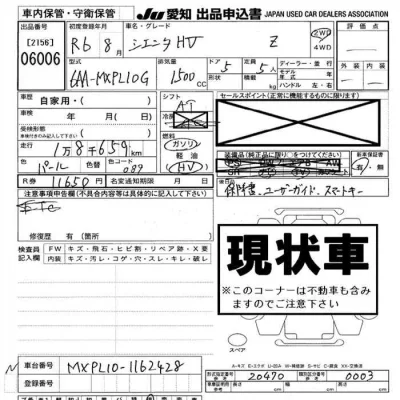 車内保管・守衛保管
JU 愛知 出品申込書 JAPAN USED CAR DEALERS ASSOCIATION
出品番号 [2156] 06006
初度登録年月 R6 8月
車名・グレード シエンタHV Z
2WD 4WD
評価点
型式 6AA-MXPL10G
排気量 1500 cc
ドア 5
定員 5
ディーラー・並行
モデル 年
外装
内装
車歴 自家用・( )
車検 年 月( )
走行 1万8千659 km
色 パール
色コード 089
シフト AT
冷房
燃料 ガソリン 軽油 (HV)
セールスポイント(正常に機能するものに限ります)
装備品(純正品に限り)をつけてください
新車保証書 有・無
R券 11650 円
名変通知期限 月 日
保証書、ユーザーガイド、スマートキー
注意事項申告欄(不具合内容等は具体的に記入して下さい)
修復歴 有(箇所 )
検査員記入欄
外装 キズ・飛石・ヒビ割・リペア跡・X要
内装 キズ・汚レ・コゲ・穴・スレ・キレ・破レ
現状車
※このコーナーは不動車も含みますのでご注意下さい
スペア
車台番号 MXPL10-1162428
登録番号
型式指定番号 20470
類別区分番号 0003